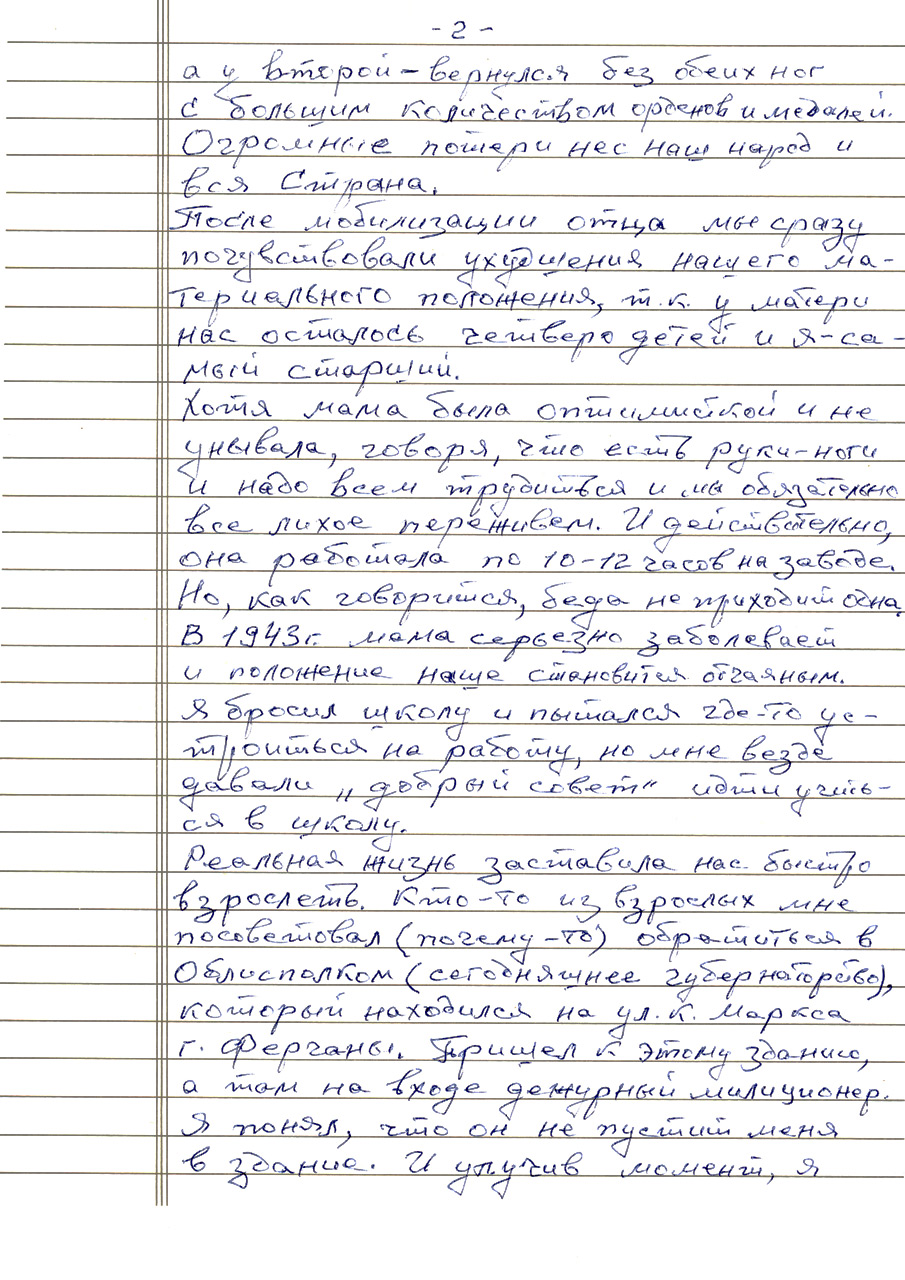 - 2 -
а у второй – вернулся без обеих ног
с большим количеством орденов и медалей.
Огромные потери нес наш народ и
вся Страна.
После мобилизации отца мы сразу
почувствовали ухудшения нашего ма-
териального положения, т.к. у матери
нас осталось четверо детей и я-са-
мый старший.
Хотя мама была оптимисткой и не
унывала, говоря, что есть руки-ноги
и надо всем трудиться и мы обязательно
все лихое переживем. И действтельно,
она работала по 10-12 часов на заводе.
Но, как говорится, беда не приходит одна.
В 1943г. мама серьезно заболевает
и положение наше становится отчаяным.
Я бросил школу и пытался где-то ус-
троиться на работу, но мне везде
давали „добрый совет“ идти учить-
ся в школу.
Реальная жизнь заставила нас быстро
взрослеть. Кто-то из взрослых мне
посоветовал (почему-то) обратиться в
Облисполком (сегодняшнее губернаторство),
который находился на ул. К. Маркса
г. Ферганы. Пришел к этому зданию,
а там на входе дежурный милиционер.
Я понял, что он не пустит меня
в здание. И улучив момент, я